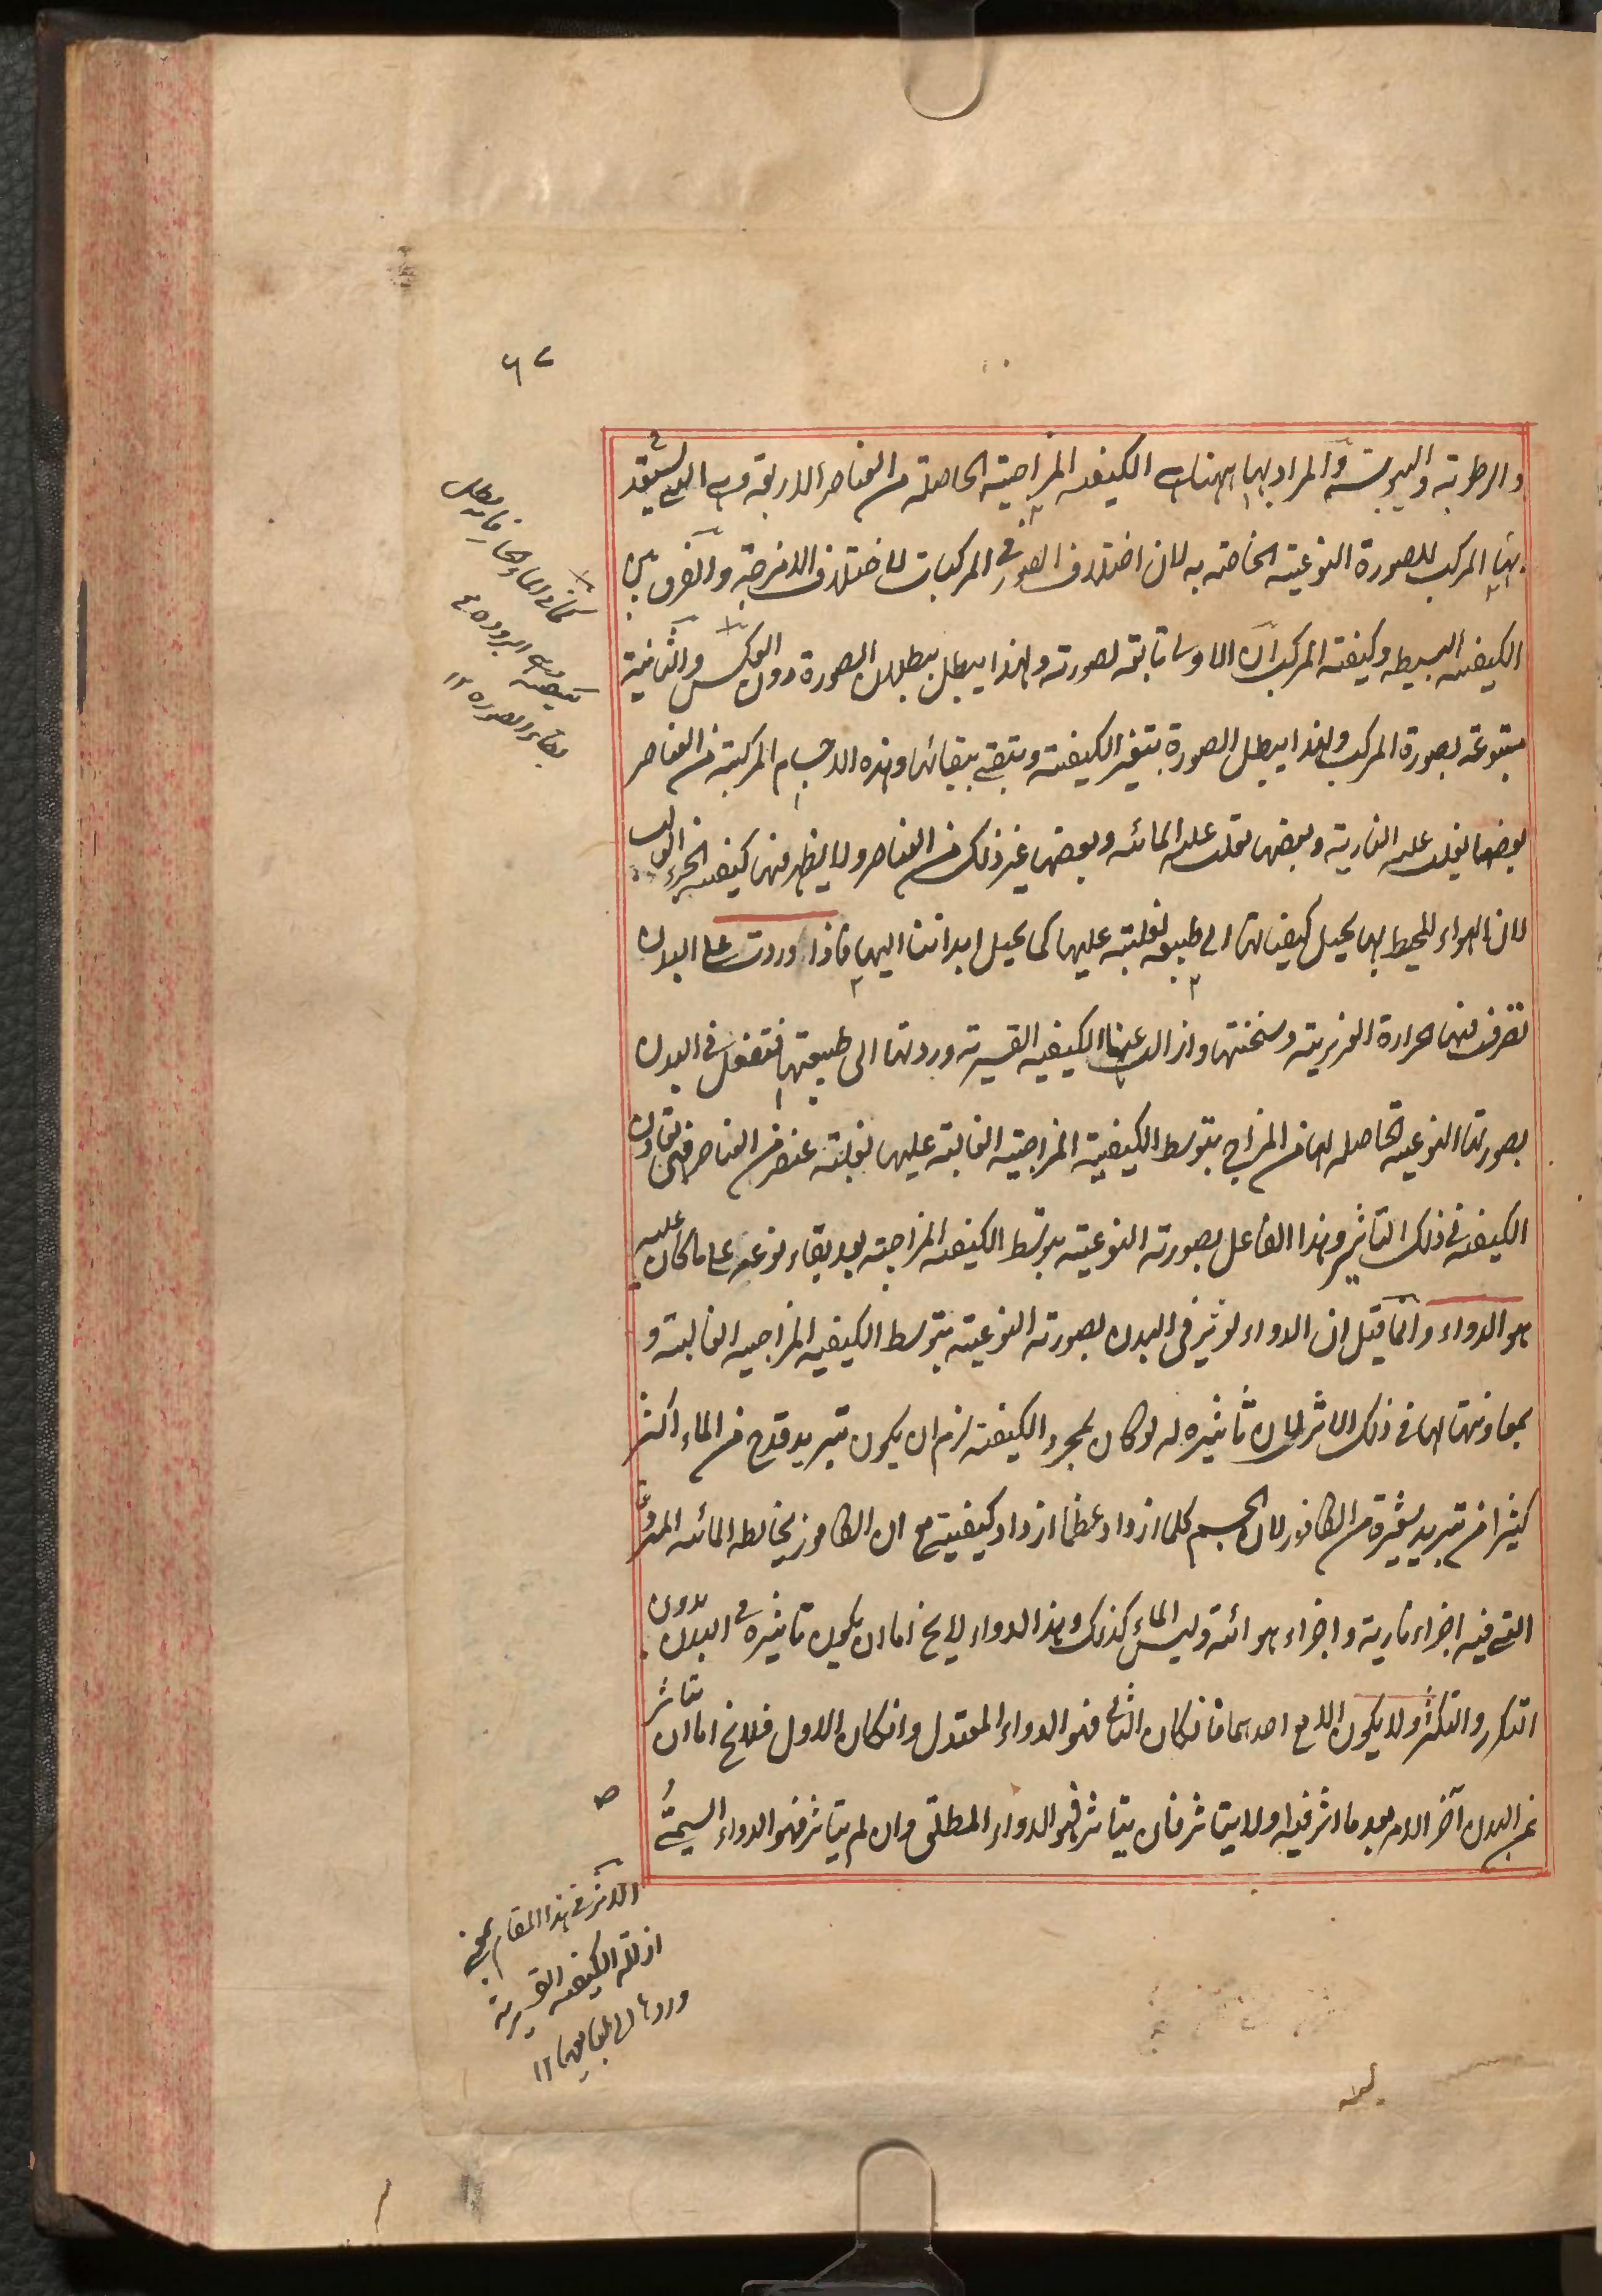 ٦٧
والرطوبة واليبوسة والمراد بها ههنا هى الكيفية المزاجية الحاصلة من العناصر الاربعة وهى التى يستعد
بها المركب للصورة النوعية الخاصة به لان اختلاف الصور فى المركبات لاختلاف الامزجة والفرق بين
الكيفية البسيطه وكيفية المركب ان الاولى تابعة لصورته ولهذا يبطل ببطلان الصورة دون العكس والثانية
متبوعة لصورة المركب ولهذا يبطل الصورة بتغير الكيفية وتبقى ببقائها وهذه الاجسام المركبة من العناصر
بعضها يغلب عليه النارية وبعضها يغلب عليه المائية وبعضها غير ذلك من العناصر ولا يظهر منها كيفية الجزء الغالب
لان الهواء المحيط بها يحيل كيفياتها الى طبيعه لغلبته عليها كما يحيل ابداننا اليها فاذا وردت على البدن
تصرف فيها حرارة الغريزية وسخنتها وازالت عنها الكيفية القسرية وردتها الى طبيعتها فتفعل فى البدن
بصورتها النوعية الحاصلة لها من المزاج بتوسط الكيفية المزاجية الغالبة عليها لغلبة عنصر من العناصر فهى تعاون
الكيفية فى ذلك التاثير وهذا الفاعل بصورته النوعية بتوسط الكيفية المزاجية بعد بقاء نوعه على ما كان عليه
هو الدواء وانما قيل ان الدواء يؤثر فى البدن بصورته النوعية بتوسط الكيفية المزاجية الغالبة و
بمعاونتها لها فى ذلك الاثر لان تاثيره له لو كان لمجرد الكيفية لزم ان يكون تبريد قدح من الماء اكثر
كثيرا من تبريد شعيرة من الكافور لان الجسم كلما ازداد عظما ازداد كيفيته مع ان الكافور يخالطه المائية
التى فيه اجزاء نارية واجزاء هوائية وليس الماء كذلك وهذا الدواء لا يخ اما ان يكون تاثيره فى البدن بدون
التكرر والتكثر ولا يكون الا مع احدهما فان كان الثانى فهو الدواء المعتدل وان كان الاول فلا يخ اما ان يتاثر
عن البدن آخر الامر بعد ما اثر فيه اولا يتاثر فان يتاثر فهو الدواء المطلق وان لم يتاثر فهو الدواء السمى
كما فى الماء الحار فانه يبطل
كيفيته وهى البرودة مع
بقاء الصورة ١٢
الاثر فى هذا المقام بمعنى
ازالة الكيفية القسرية
وردها الى طبايعها ١٢